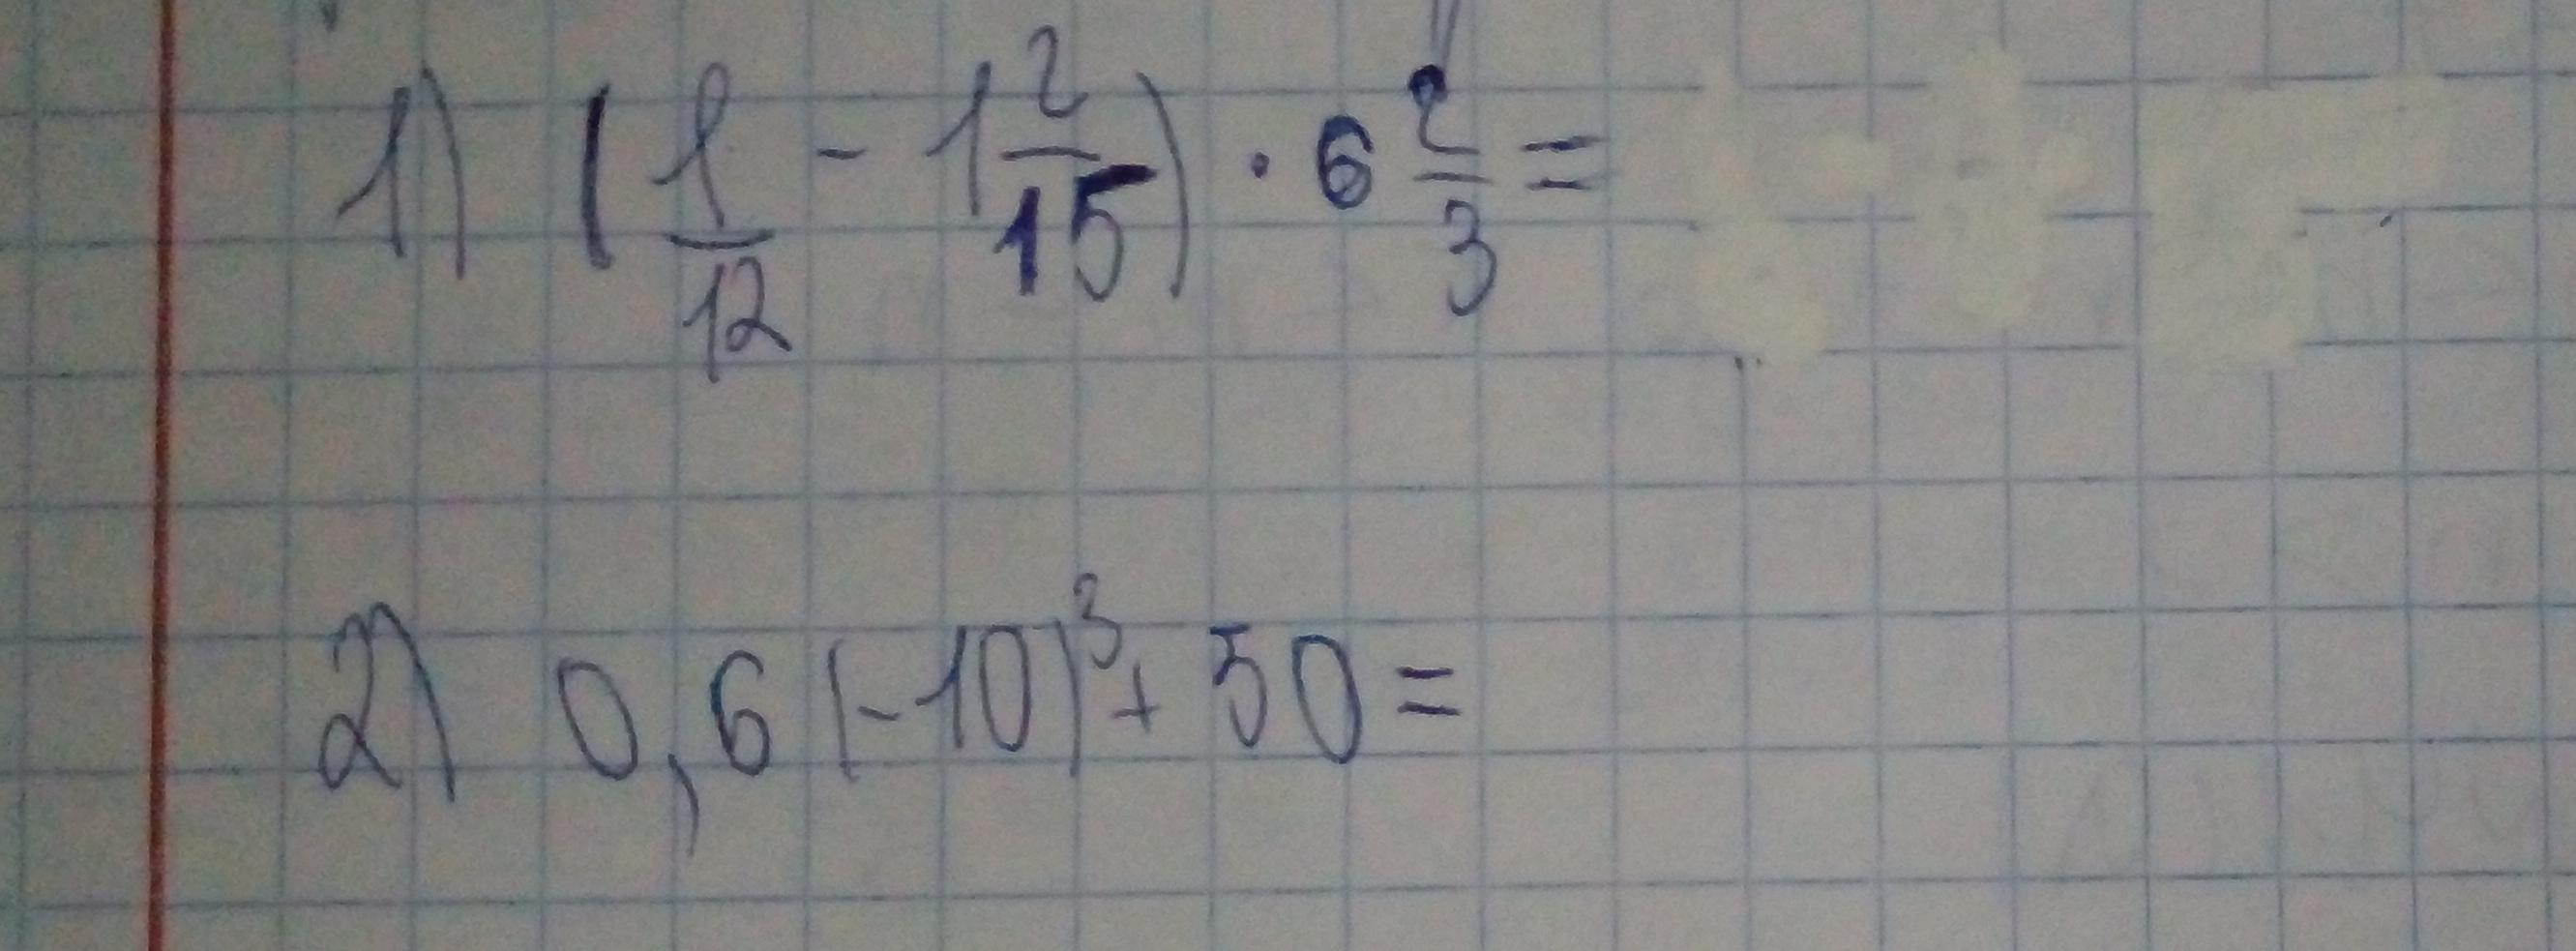 1) (1/12 - 1 2/15) · 6 2/3 =
2) 0,6 (-10)³ + 50 =